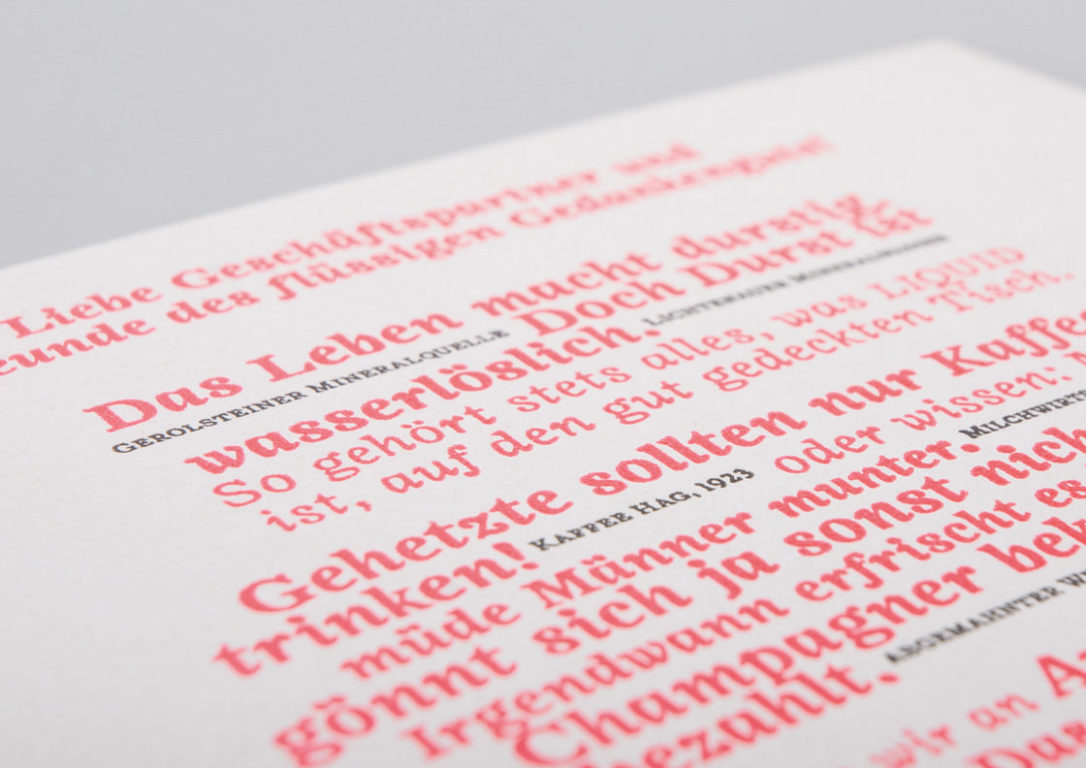 Liebe Geschäftspartner und
eunde des flüssigen Gedankenguts!
Das Leben macht durstig.
GEROLSTEINER MINERALQUELLE Doch Durst ist
wasserlöslich. LICHTENAUER MINERALQUELLE
So gehört stets alles, was LIQUID
ist, auf den gut gedeckten Tisch.
Gehetzte sollten nur Kaffe
trinken! KAFFEE HAG, 1923 oder wissen:
müde Männer munter. MILCHWIRTS
gönnt sich ja sonst nich
Irgendwann erfrischt es
Champagner bek
bezahlt. ABGEMAHNTER W
wir an A